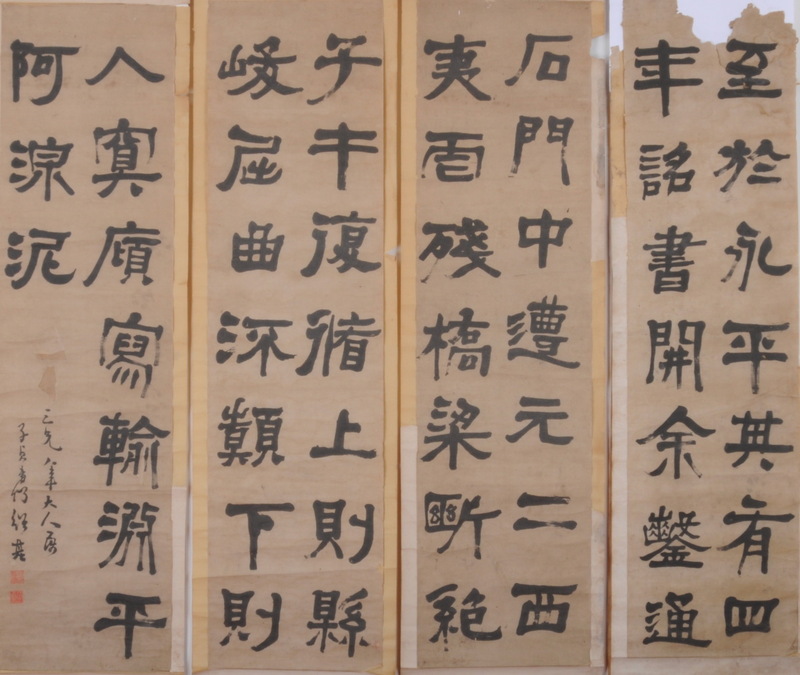 至於永平其有四
年詔書開余鑿通
石門中遭元二西
夷虐殘橋梁斷絕
子午復循上則縣
峻屈曲流顛下則
入冥廎寫輸淵平
阿湶泥
三兄年大人屬
子貞弟何紹基